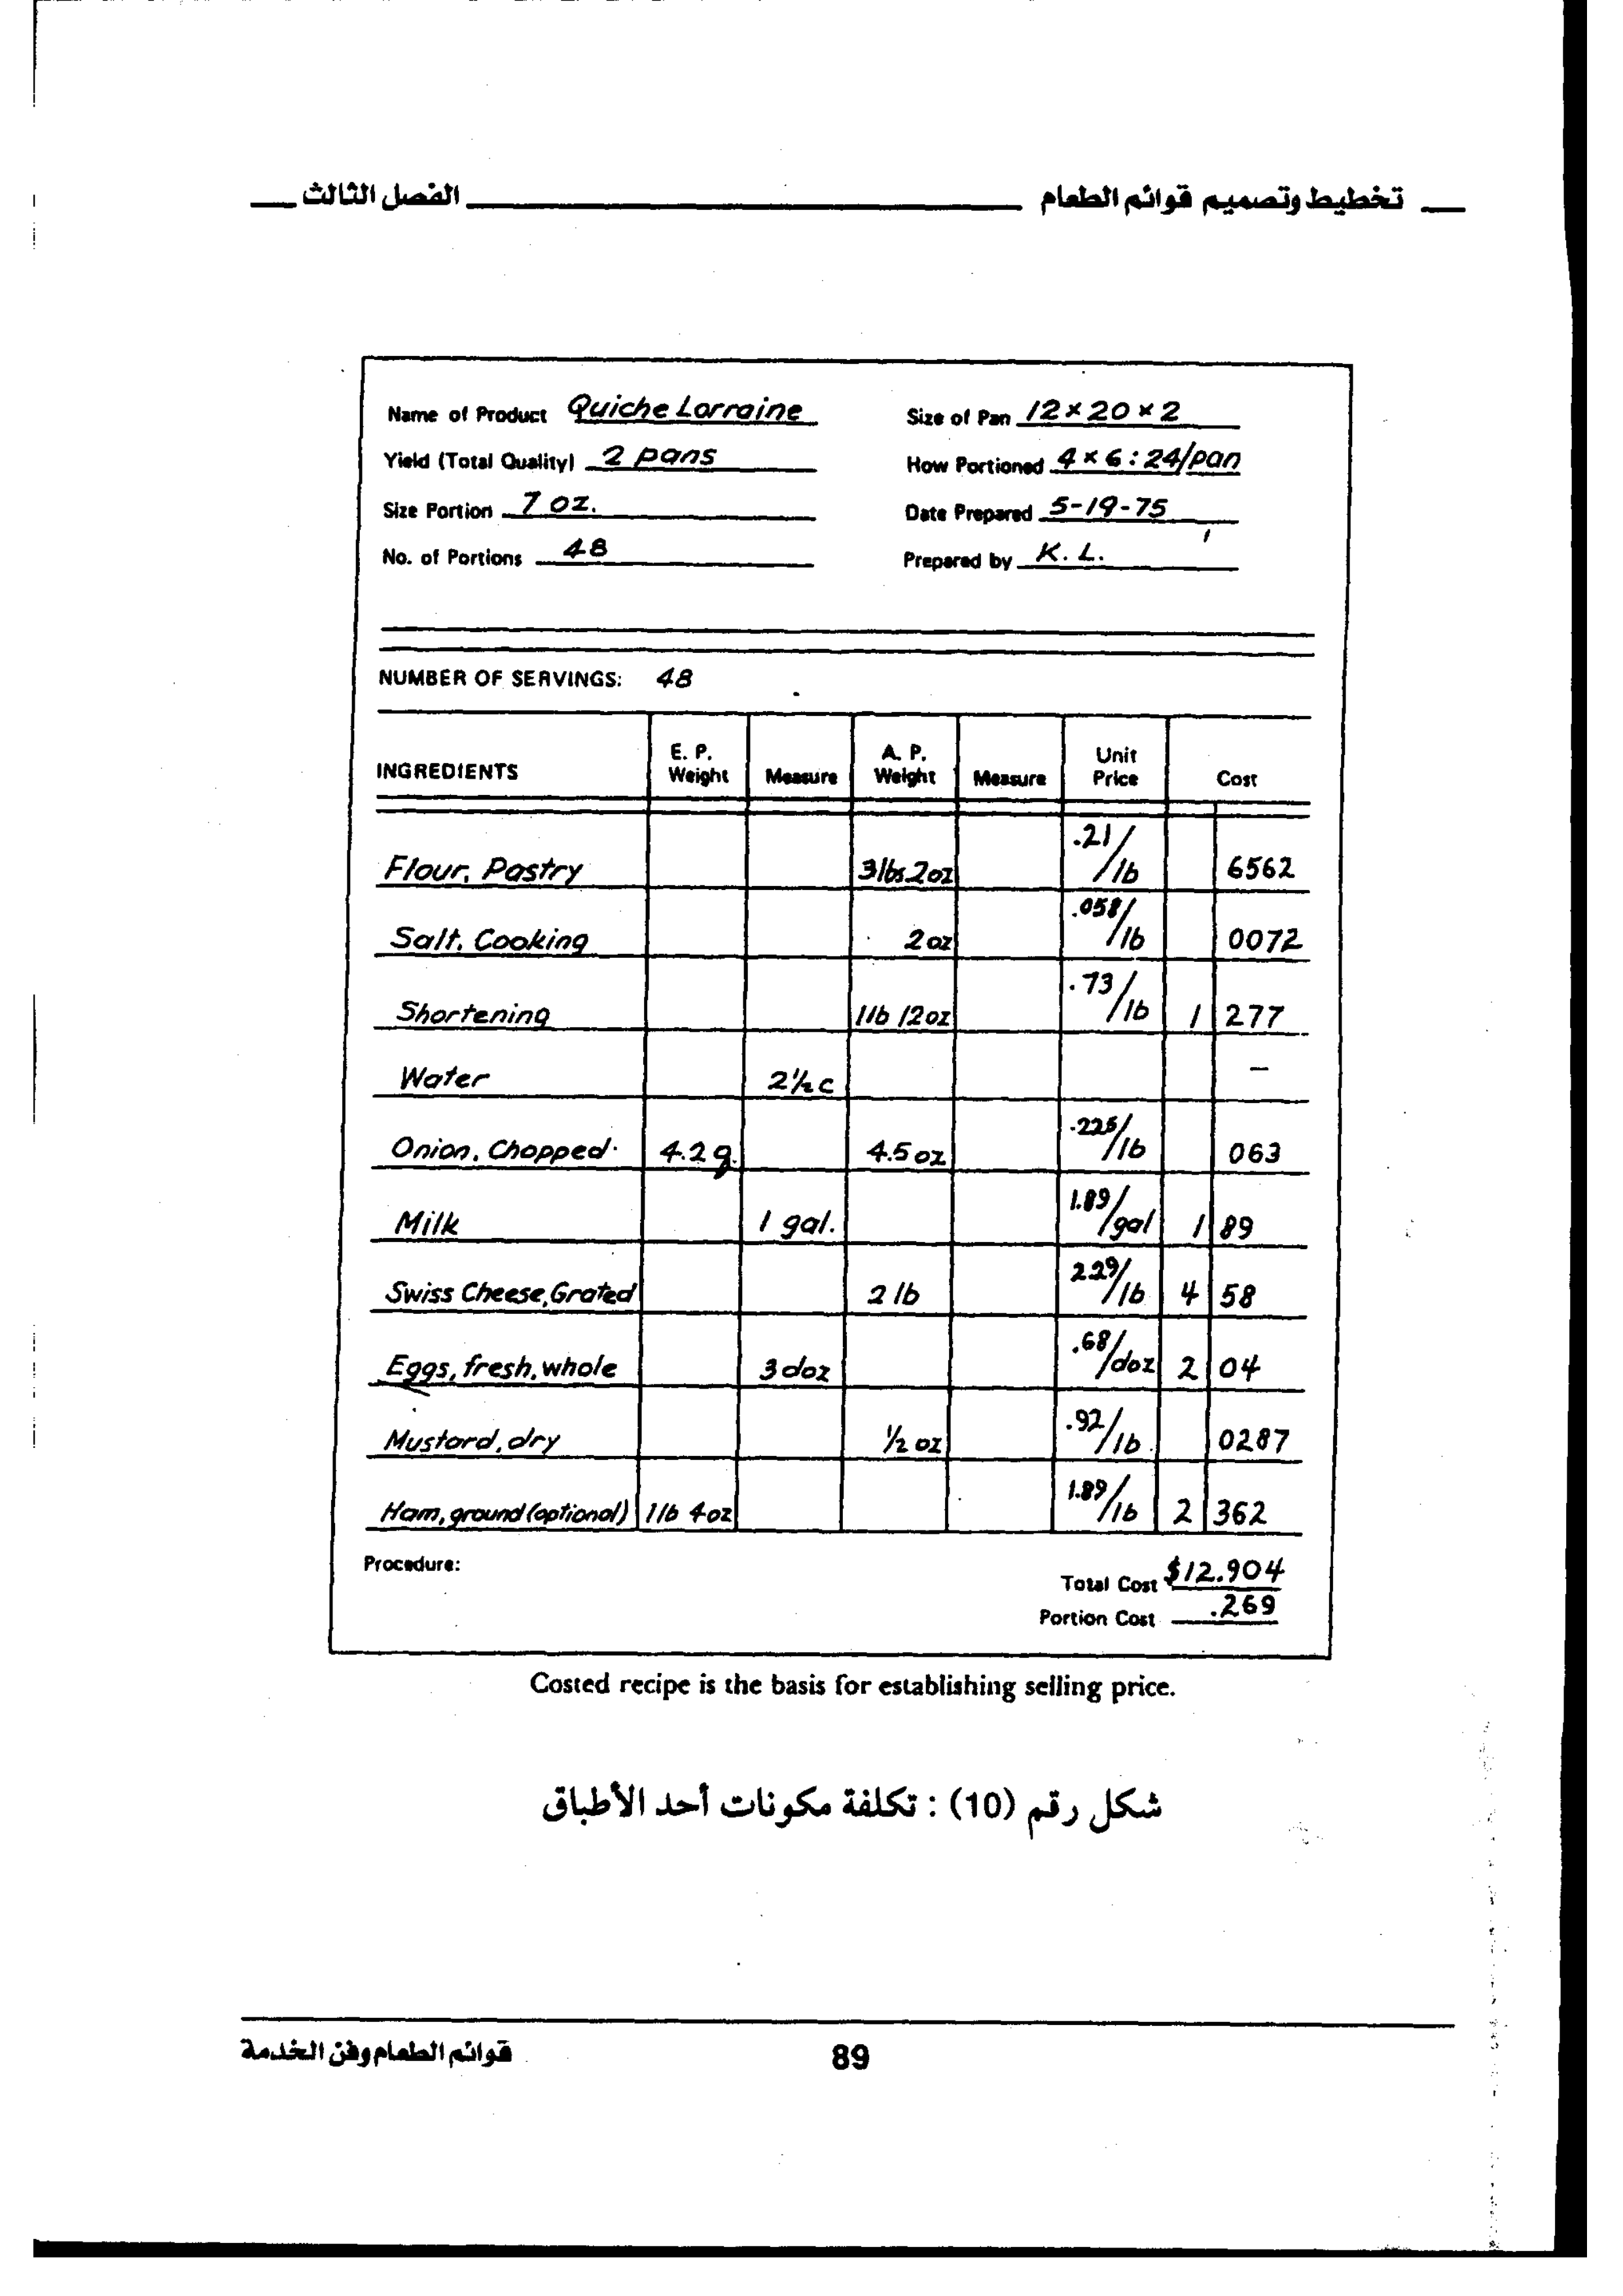 تخطيط وتصميم قوائم الطعام الفصل الثالث
Name of Product Quiche Lorraine Size of Pan 12 × 20 × 2
Yield (Total Quality) 2 pans How Portioned 4 × 6 : 24/pan
Size Portion 7 oz. Date Prepared 5-19-75
No. of Portions 48 Prepared by K. L.
NUMBER OF SERVINGS: 48
INGREDIENTS E. P. Weight Measure A. P. Weight Measure Unit Price Cost
Flour, Pastry 3 lbs 2 oz .21/lb 6562
Salt, Cooking 2 oz .058/lb 0072
Shortening 1 lb 12 oz .73/lb 1 277
Water 2½ c –
Onion, Chopped 4.2 g. 4.5 oz .225/lb 063
Milk 1 gal. 1.89/gal 1 89
Swiss Cheese, Grated 2 lb 2.29/lb 4 58
Eggs, fresh, whole 3 doz .68/doz 2 04
Mustard, dry ½ oz .92/lb 0287
Ham, ground (optional) 1 lb 4 oz 1.89/lb 2 362
Procedure: Total Cost $12.904
Portion Cost .269
Costed recipe is the basis for establishing selling price.
شكل رقم (10) : تكلفة مكونات أحد الأطباق
قوائم الطعام وفن الخدمة 89